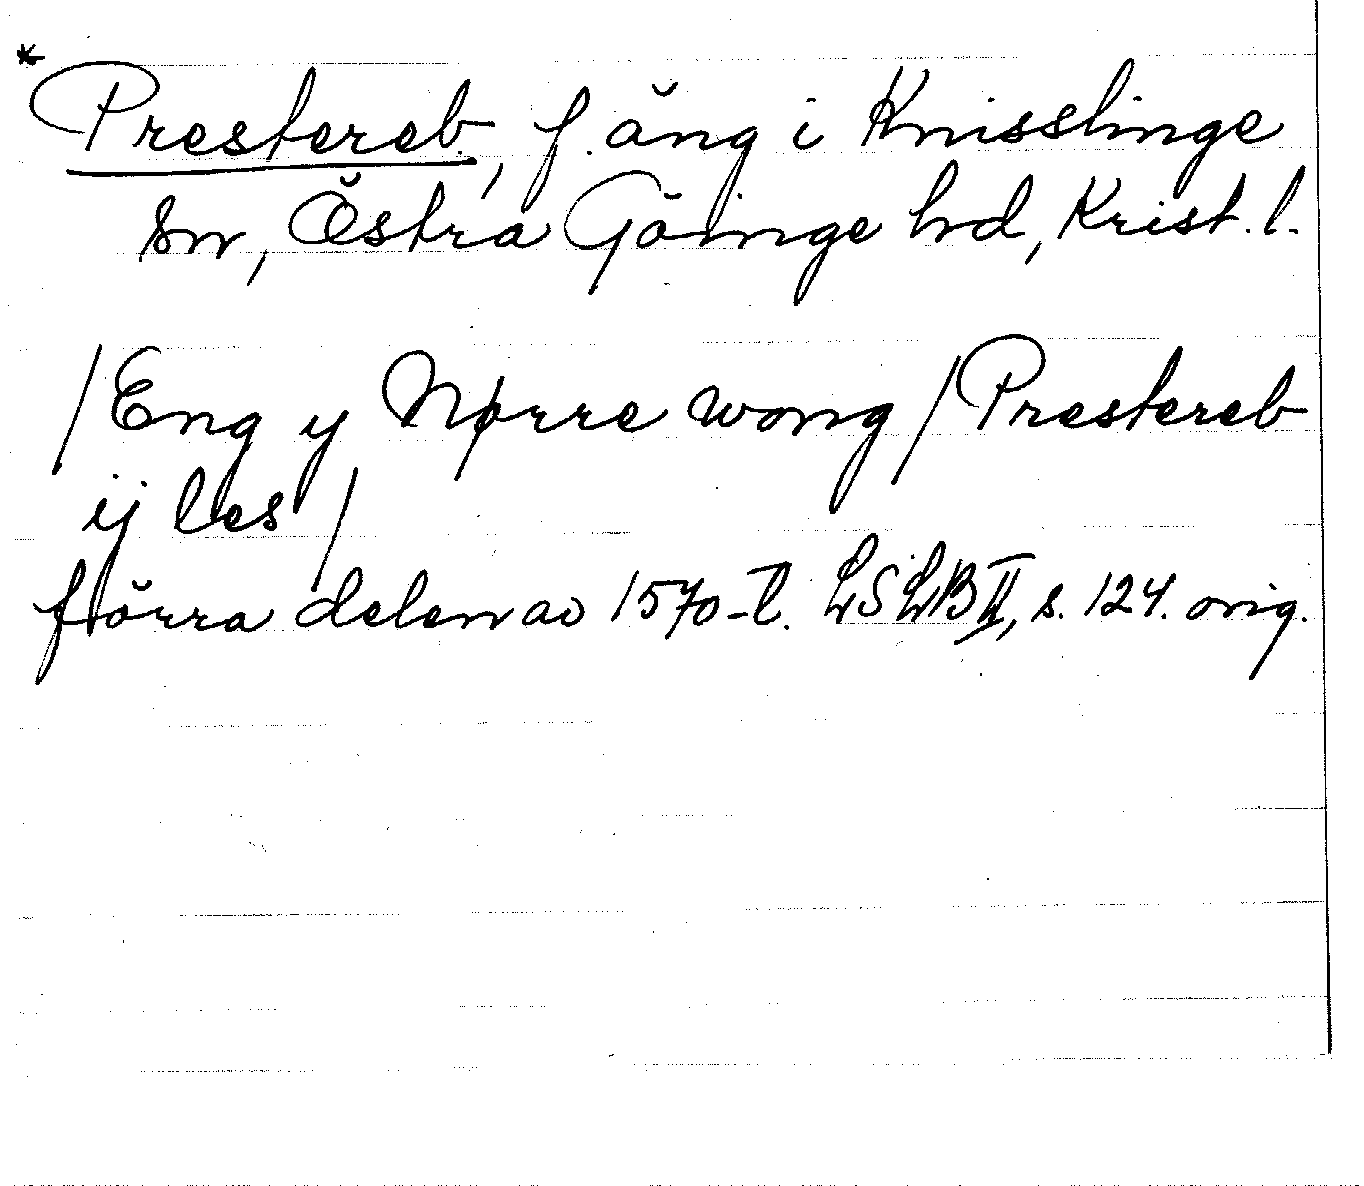 * Prestereb, f. äng i Knisslinge
sn, Östra Göinge hd, Krist. l.
/Eng y Nørre wong/ Prestereb
ij les/
förra delen av 1570-t. LSLB II, s. 124. orig.